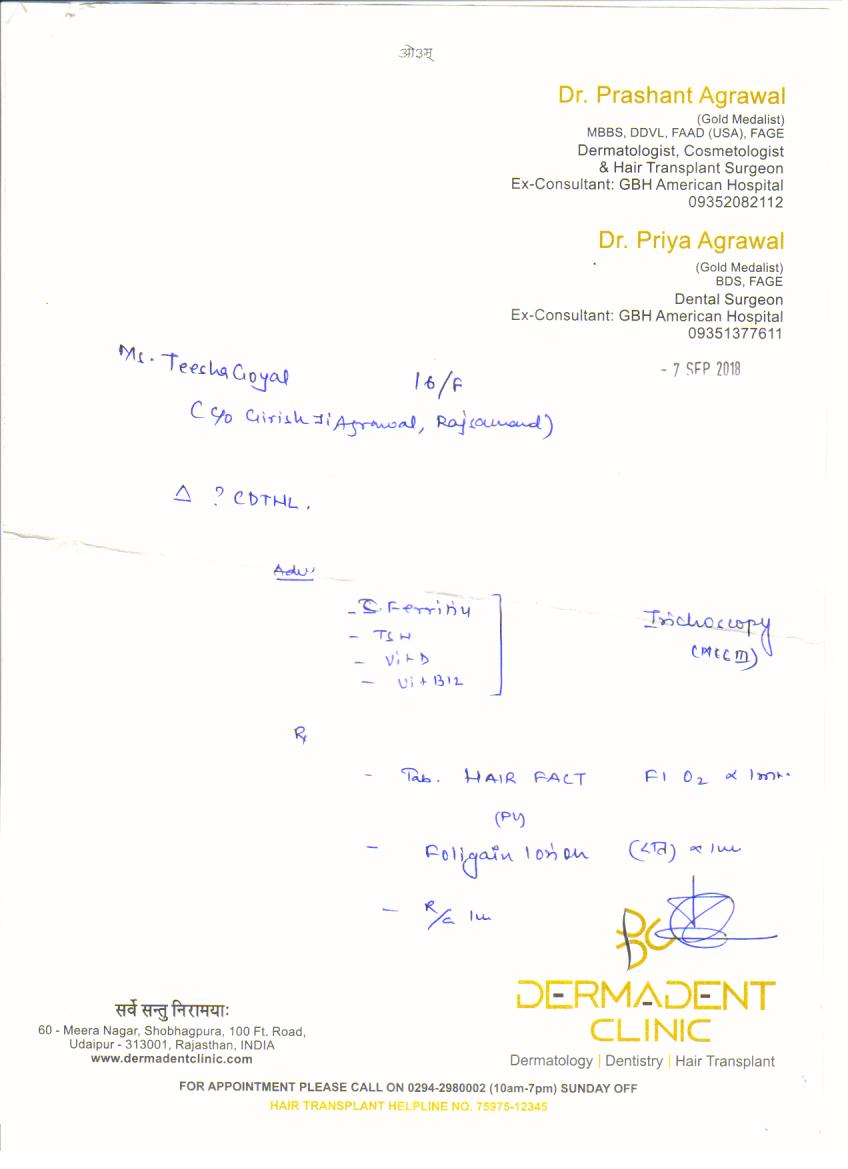 ओ३म्
Dr. Prashant Agrawal
(Gold Medalist)
MBBS, DDVL, FAAD (USA), FAGE
Dermatologist, Cosmetologist
& Hair Transplant Surgeon
Ex-Consultant: GBH American Hospital
09352082112
Dr. Priya Agrawal
(Gold Medalist)
BDS, FAGE
Dental Surgeon
Ex-Consultant: GBH American Hospital
09351377611
- 7 SEP 2018
Ms. Teesha Goyal 16/F
(C/o Girish Ji Agrawal, Rajsamand)
Δ ? CDTHL.
Adv
- S. Ferritin
- TSH
- Vit D
- Vit B12
Trichoscopy
Rx
- Tab. HAIR FACT F1 O2 x 1
- Foligain lotion x 1
- R/a 1
DERMADENT
CLINIC
Dermatology | Dentistry | Hair Transplant
सर्वे सन्तु निरामयाः
60 - Meera Nagar, Shobhagpura, 100 Ft. Road,
Udaipur - 313001, Rajasthan, INDIA
www.dermadentclinic.com
FOR APPOINTMENT PLEASE CALL ON 0294-2980002 (10am-7pm) SUNDAY OFF
HAIR TRANSPLANT HELPLINE NO. 75975-12345